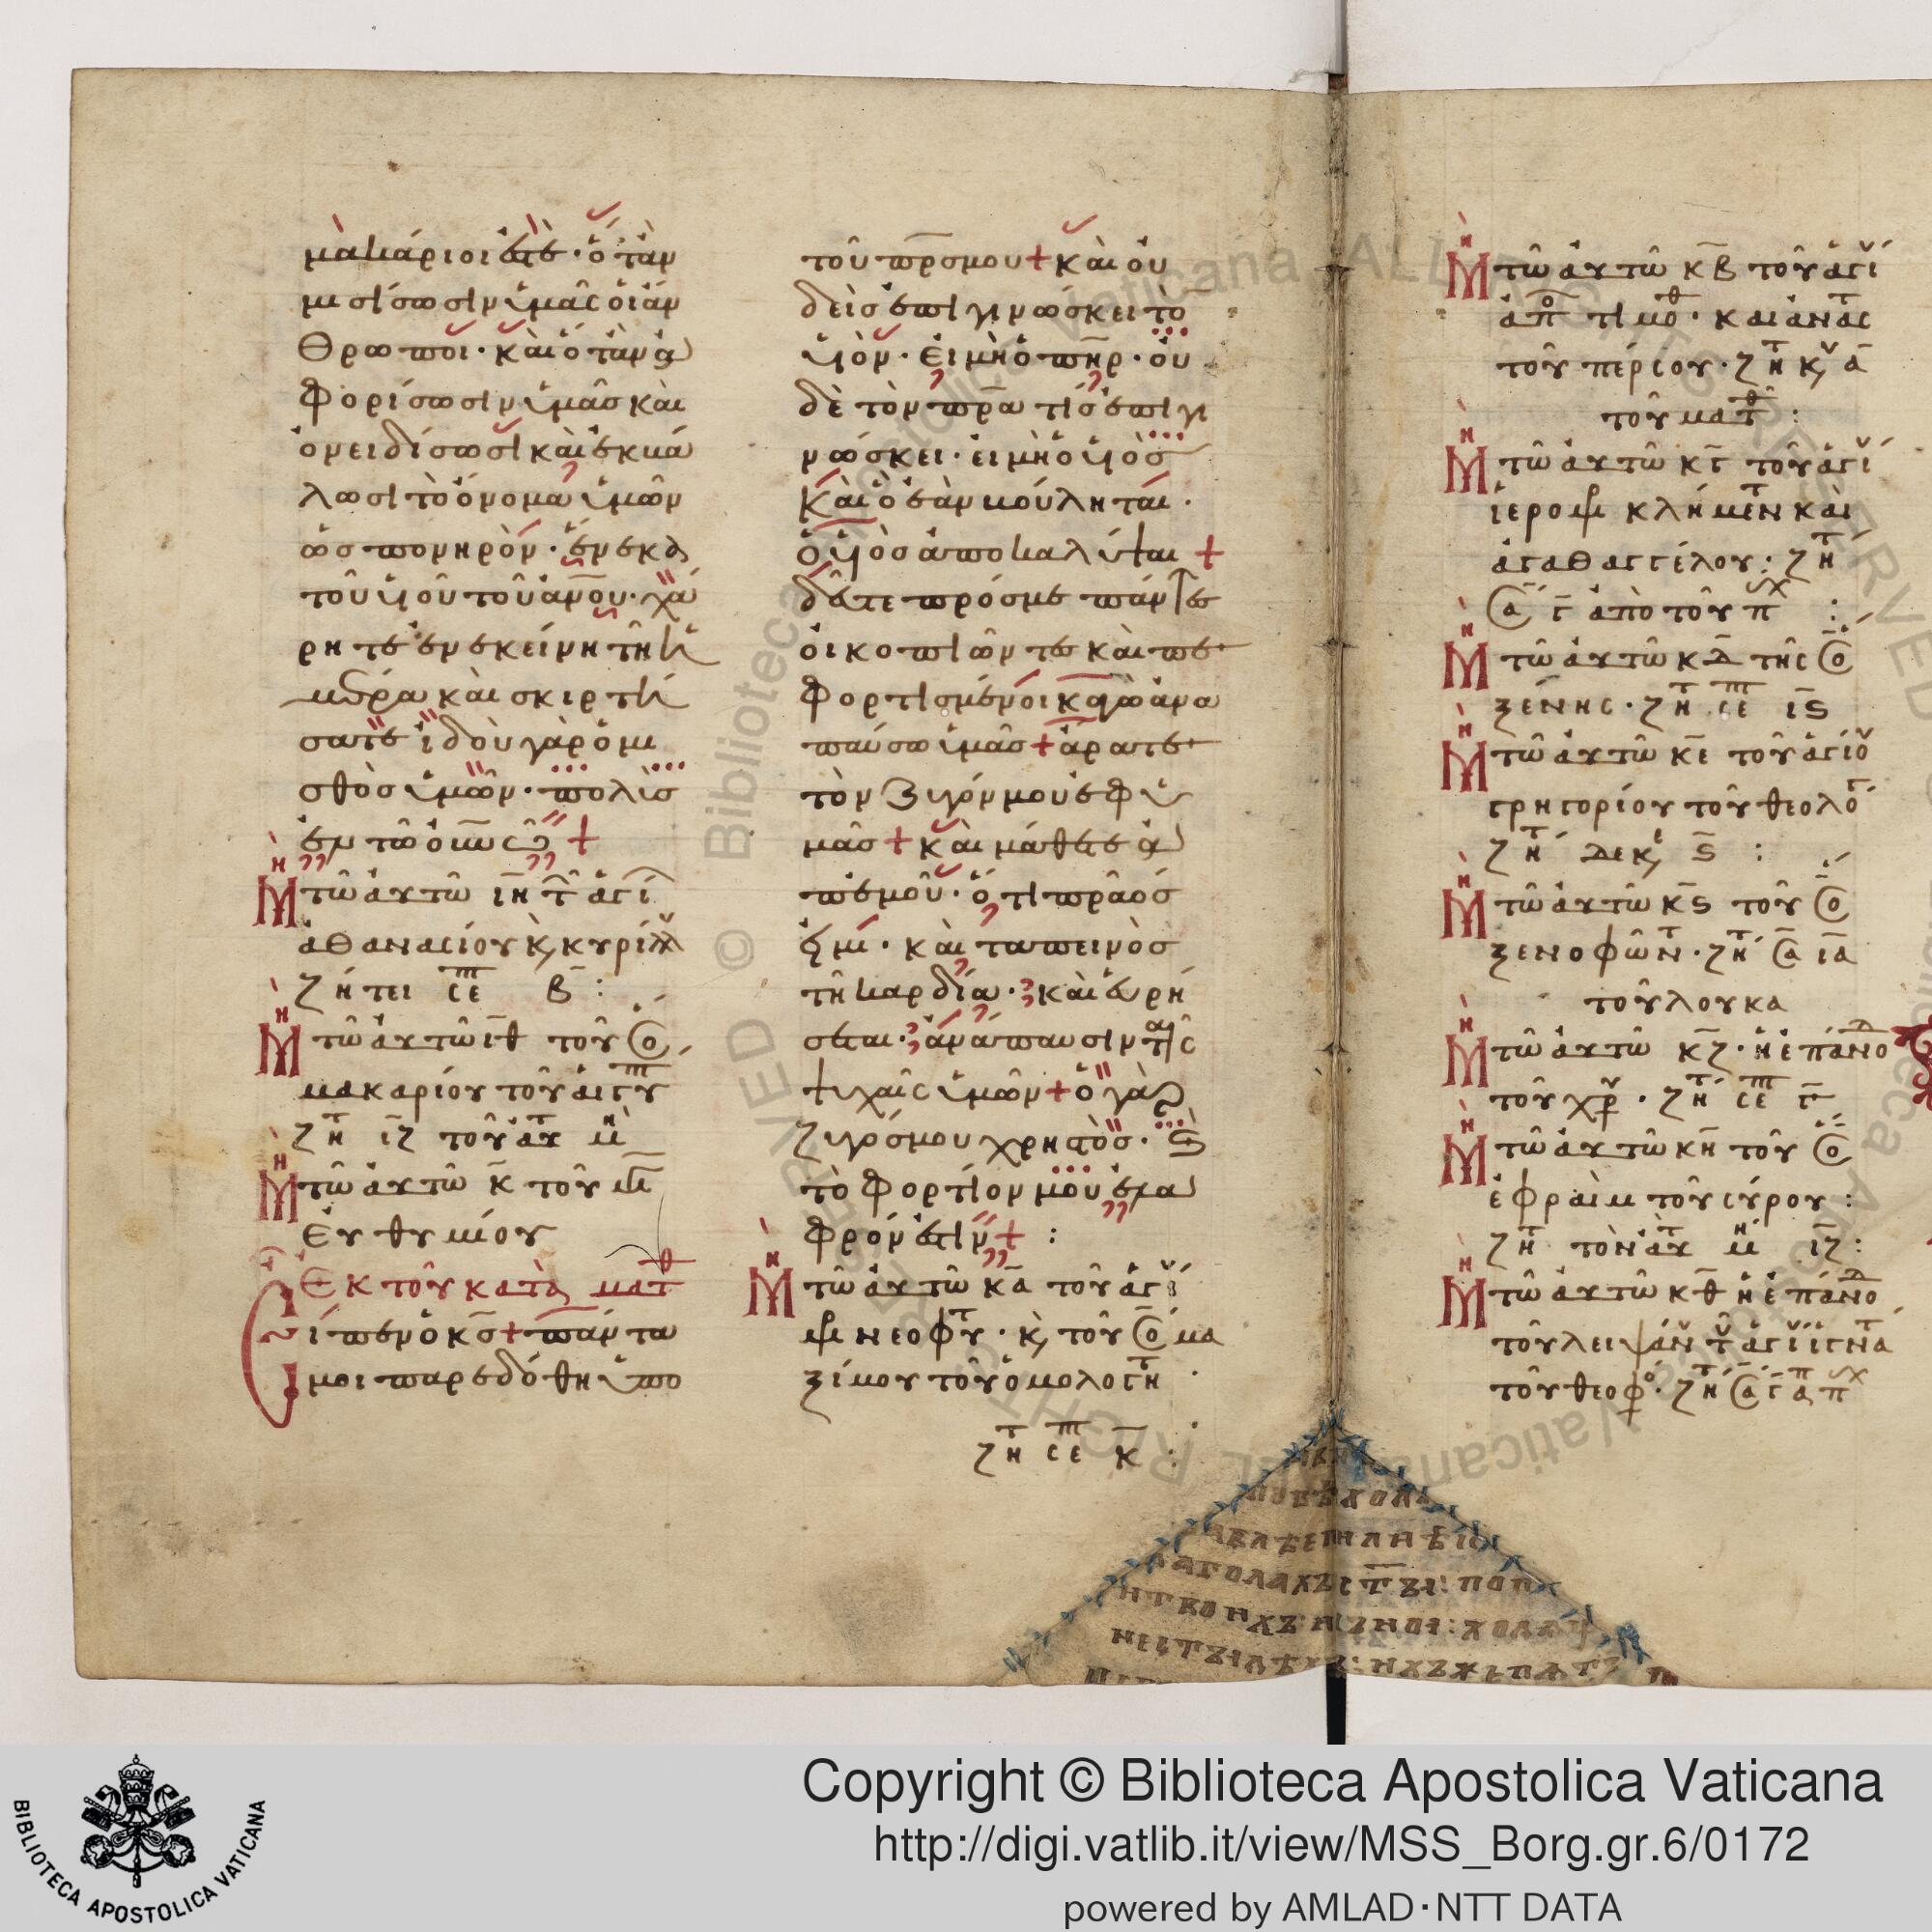 μακάριοί ἐστε· ὅταν
μισήσωσιν ὑμᾶς οἱ ἄν
θρωποι· καὶ ὅταν ἀ
φορίσωσιν ὑμᾶς καὶ
ὀνειδίσωσι καὶ ἐκβά
λωσι τὸ ὄνομα ὑμῶν
ὡς πονηρὸν· ἕνεκα
τοῦ υἱοῦ τοῦ ἀν̅ου· χά
ρητε ἐν ἐκείνη τῆ ἡ
μέρα καὶ σκιρτή
σατε ἰδοὺ γὰρ ὁ μι
σθὸς ὑμῶν· πολὺς
ἐν τῶ
Μ τῶ αὐτῶ ιη τ ἁγί
ἀθανασίου κ, κυρίλλ
ζήτει σε β :
Μ τῶ αὐτῶ ιθ τοῦ ὁ
μακαρίου τοῦ αἰγυ
ζη ιζ τοῦ αυ μ
Μ τῶ αὐτῶ κ τοῦ
εὐθυμίου
Ἐκ τοῦ κατὰ ματθ
εἶπεν ὁ κς + πάντα
μοι παρεδόθη ὑπο
τοῦ πρσ μου + καὶ οὐ
δεὶς ἐπιγινώσκει τὸ
υἱὸν· εἰ μὴ ὁ πηρ· οὐ
δὲ τὸν πρα τίς ἐπιγι
νώσκει· εἰ μὴ ὁ υἱὸς
καὶ ὁ ἐὰν βούληται·
ὁ υἱὸς ἀποκαλύψαι +
δεῦτε πρός με πάντες
οἱ κοπιῶντες καὶ πε
φορτισμένοι καγὼ ἀνα
παύσω ὑμᾶς + ἄρατε
τὸν ζυγόν μου ἐφ ὑ
μᾶς + καὶ μάθετε ἀ
π ἐμοῦ· ὅτι πρᾶός
εἰμι· καὶ ταπεινὸς
τῆ καρδία· καὶ εὑρή
σεται· ἀνάπαυσιν ταῖς
ψυχαῖς ὑμῶν + ὁ γὰρ
ζυγός μου χρηστὸς· κ
τὸ φορτίον μου ἐλα
φρόν ἐστιν + :
Μ τῶ αὐτῶ κα τοῦ ἁγί
μ νεοφυτ· κ, τοῦ ὁ μα
ξίμου τοῦ ὁμολογητ
ζη σε κ :
Μ τῶ αὐτῶ κβ τοῦ ἁγί
ἀπ τιμοθ· καὶ ἀνας
τοῦ πέρσου· ζη κυ α
τοῦ ματθ :
Μ τῶ αὐτῶ κγ τοῦ ἁγί
ἱερομ κλήμεντ καὶ
ἀγαθαγγέλου : ζη
α γ ἀπὸ τοῦ π :
Μ τῶ αὐτῶ κδ τῆς ὁ
ξένης· ζη σε ις
Μ τῶ αὐτῶ κε τοῦ ἁγίου
γρηγορίου τοῦ θεολό
ζη δεκ ς :
Μ τῶ αὐτῶ κς τοῦ ὁ
ξενοφῶντ· ζη α ια
τοῦ λουκα
Μ τῶ αὐτῶ κζ· ἡ ἐπάνοδ
τοῦ χρ· ζη σε γ
Μ τῶ αὐτῶ κη τοῦ ὁ
ἐφραὶμ τοῦ σύρου :
ζη τὸν αυ μ ιζ :
Μ τῶ αὐτῶ κθ ἡ ἐπάνοδ
τοῦ λειψάν τ ἁγί ἰγνατ
τοῦ θεοφ· ζη α γ α π
Copyright © Biblioteca Apostolica Vaticana
http://digi.vatlib.it/view/MSS_Borg.gr.6/0172
powered by AMLAD·NTT DATA
BIBLIOTECA APOSTOLICA VATICANA